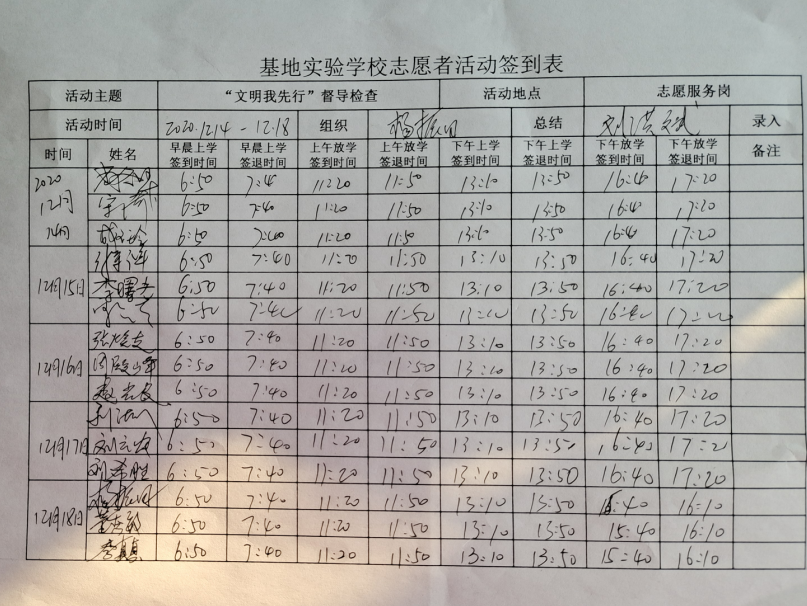 基地实验学校志愿者活动签到表
活动主题 “文明我先行”督导检查 活动地点 志愿服务岗
活动时间 2020.12.14 - 12.18 组织 杨振国 总结 录入
时间 姓名 早晨上学签到时间 早晨上学签退时间 上午放学签到时间 上午放学签退时间 下午上学签到时间 下午上学签退时间 下午放学签到时间 下午放学签退时间 备注
2020 6:50 7:40 11:20 11:50 13:10 13:50 16:40 17:20
12月 6:50 7:40 11:20 11:50 13:10 13:50 16:40 17:20
14日 6:50 7:40 11:20 11:50 13:10 13:50 16:40 17:20
6:50 7:40 11:20 11:50 13:10 13:50 16:40 17:20
12月15日 6:50 7:40 11:20 11:50 13:10 13:50 16:40 17:20
6:50 7:40 11:20 11:50 13:10 13:50 16:40 17:20
6:50 7:40 11:20 11:50 13:10 13:50 16:40 17:20
12月16日 6:50 7:40 11:20 11:50 13:10 13:50 16:40 17:20
6:50 7:40 11:20 11:50 13:10 13:50 16:40 17:20
6:50 7:40 11:20 11:50 13:10 13:50 16:40 17:20
12月17日 6:50 7:40 11:20 11:50 13:10 13:50 16:40 17:20
刘希胜 6:50 7:40 11:20 11:50 13:10 13:50 16:40 17:20
杨振国 6:50 7:40 11:20 11:50 13:10 13:50 16:10
12月18日 6:50 7:40 11:20 11:50 13:10 13:50 15:40 16:10
6:50 7:40 11:20 11:50 13:10 13:50 15:40 16:10